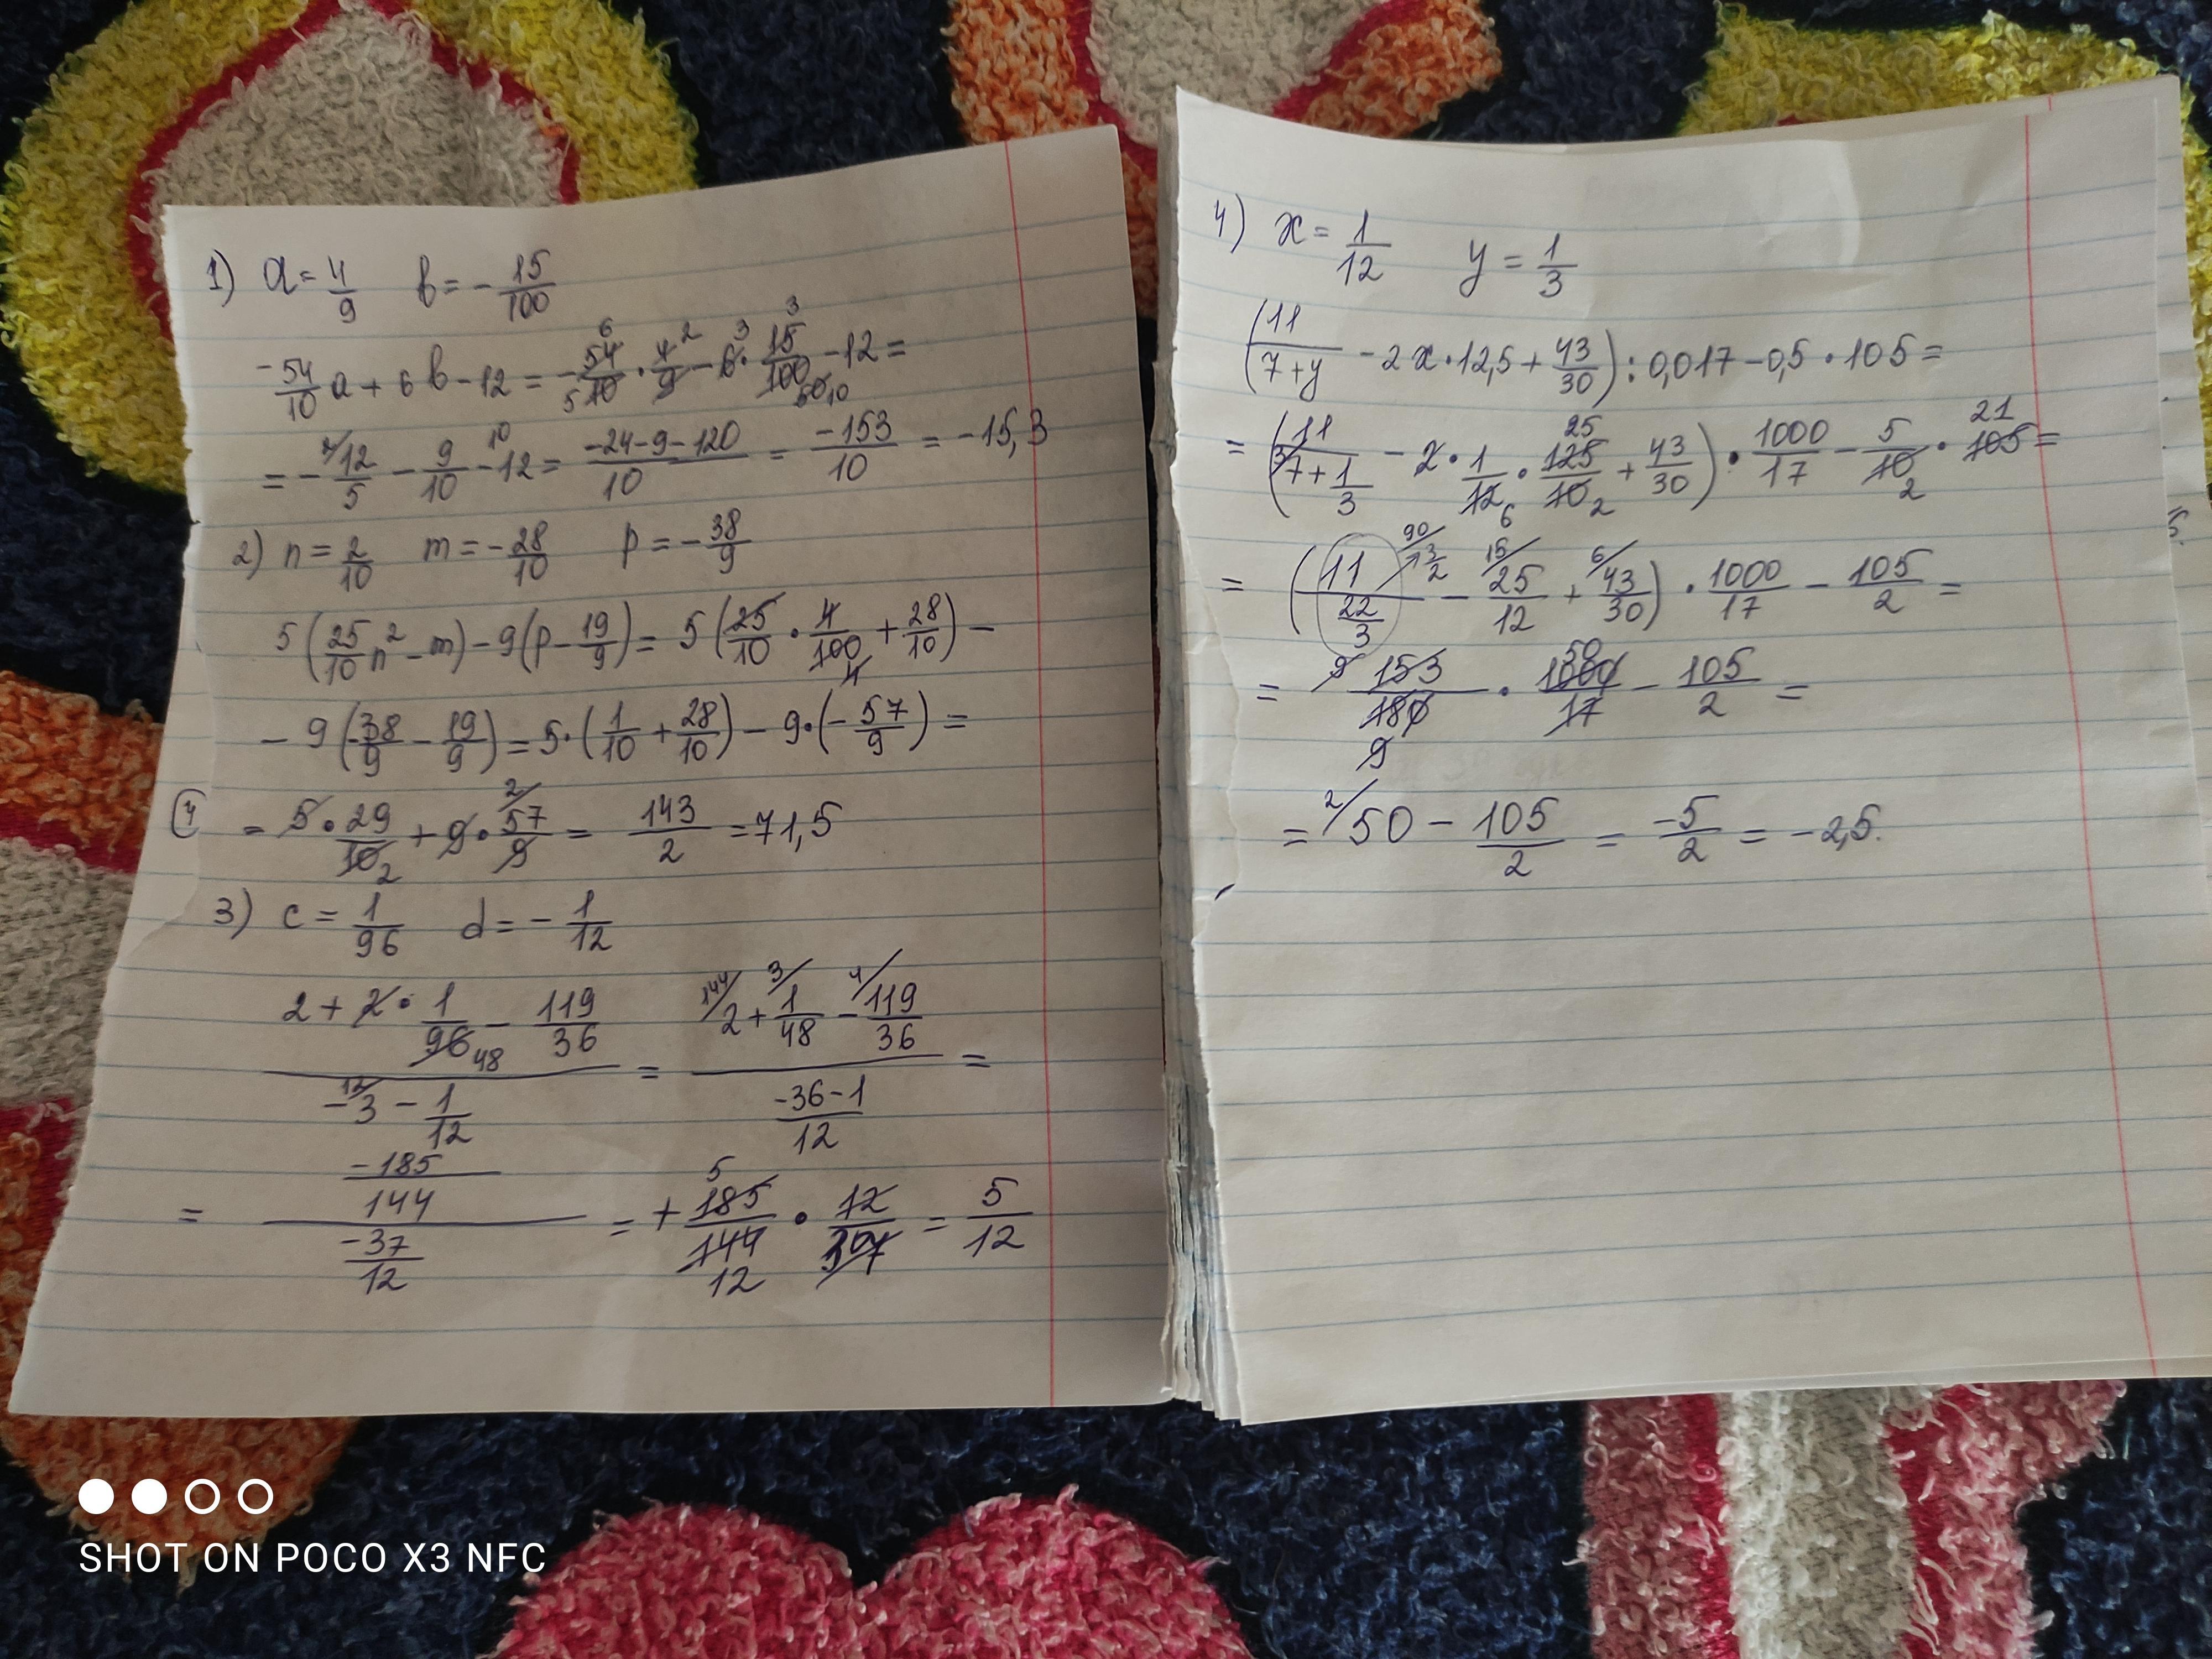 1) a = 4/9 b = - 15/100
-54/10 a + 6b - 12 = - 54/10 · 4/9 - 6 · 15/100 - 12 =
= - 12/5 - 9/10 - 12 = (-24-9-120)/10 = -153/10 = -15,3
2) n = 2/10 m = - 28/10 p = - 38/9
5 (25/10 n² - m) - 9 (p - 19/9) = 5 (25/10 · 4/100 + 28/10) -
- 9 (-38/9 - 19/9) = 5 · (1/10 + 28/10) - 9 · (- 57/9) =
= 5 · 29/10 + 9 · 57/9 = 143/2 = 71,5
3) c = 1/96 d = - 1/12
(2 + 2 · 1/96 - 119/36)/(-3 - 1/12) = (2 + 1/48 - 119/36)/((-36-1)/12) =
= (-185/144)/(-37/12) = + 185/144 · 12/37 = 5/12
4) x = 1/12 y = 1/3
(11/(7+y) - 2x · 12,5 + 43/30) : 0,017 - 0,5 · 105 =
= (11/(7 + 1/3) - 2 · 1/12 · 125/10 + 43/30) · 1000/17 - 5/10 · 105 =
= (11/(22/3) - 25/12 + 43/30) · 1000/17 - 105/2 =
= 153/180 · 1000/17 - 105/2 =
= 50 - 105/2 = -5/2 = -2,5.
SHOT ON POCO X3 NFC